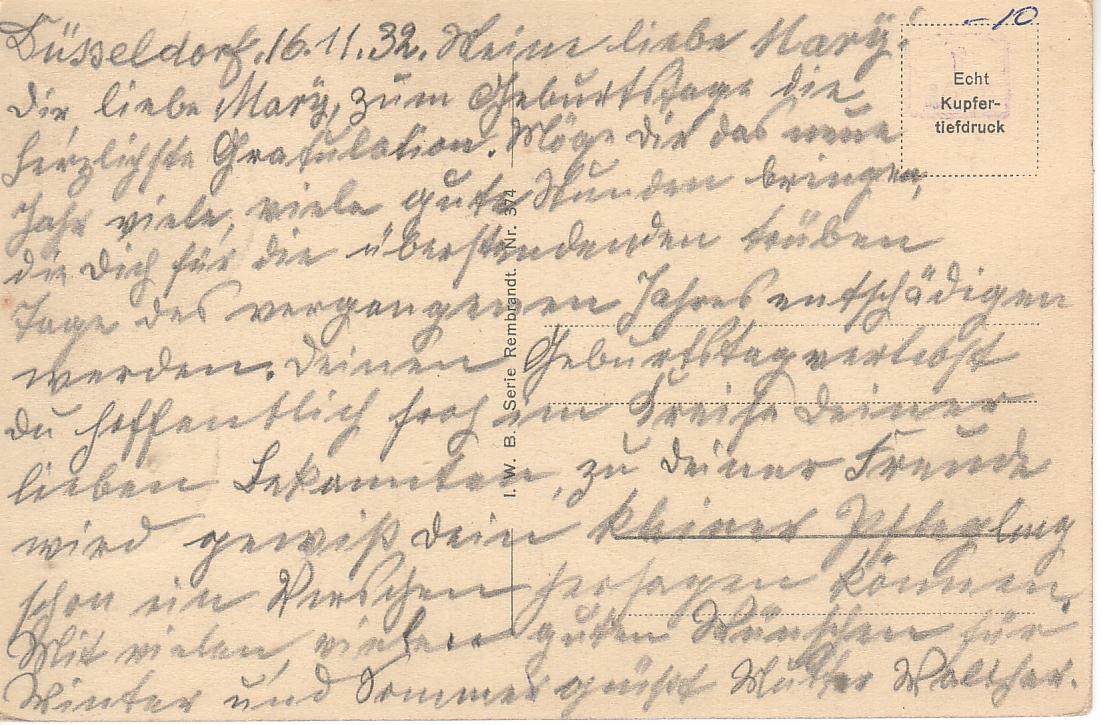 -10
Echt
Kupfer-
tiefdruck
I. W. B. Serie Rembrandt. Nr. 374
Düsseldorf. 16.11.32. Meine liebe Mary!
Dir liebe Mary, zum Geburtstage die
herzlichste Gratulation. Möge dir das neue
Jahr viele, viele gute Stunden bringen,
die Dich für die überstandenden trüben
Tage des vergangenen Jahres entschädigen
werden. Deinen Geburtstag verlebst
du hoffentlich froh im Kreise deiner
lieben Bekannten, zu deiner Freude
wird gewiß dein kleiner Pflegling
schon ein Verschen hersagen können.
Mit vielen, vielen guten Wünschen für
Winter und Sommer grüßt Mutter Walther.